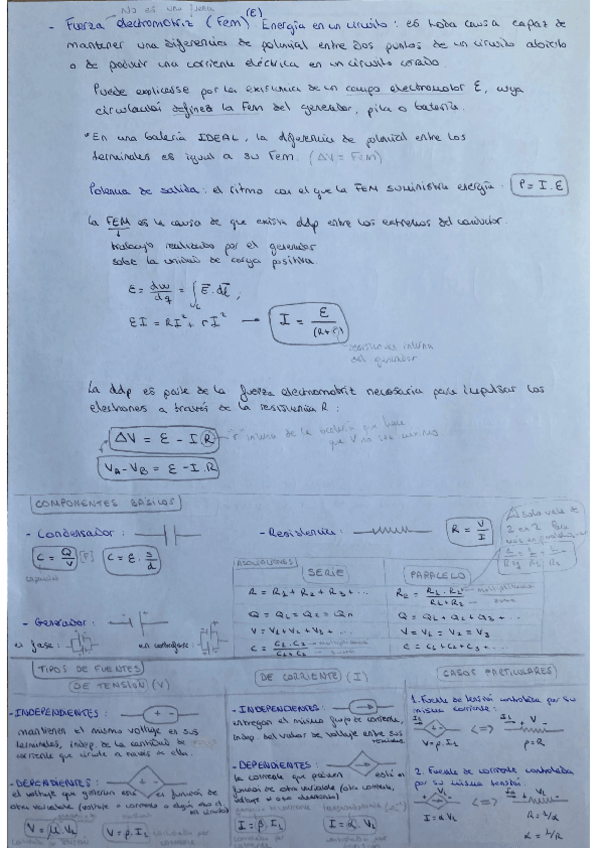 No es una fuerza
- Fuerza electromotriz (Fem) (ε) Energía en un circuito: es toda causa capaz de
mantener una diferencia de potencial entre dos puntos de un circuito abierto
o de producir una corriente eléctrica en un circuito cerrado.
Puede explicarse por la existencia de un campo electromotor ε, cuya
circulación define la Fem del generador, pila o batería.
*En una batería IDEAL, la diferencia de potencial entre los
terminales es igual a su Fem. (ΔV = Fem)
Potencia de salida: el ritmo con el que la FEM suministra energía. P = I·ε
La FEM es la causa de que exista ddp entre los extremos del conductor.
trabajo realizado por el generador
sobre la unidad de carga positiva.
ε = dw/dq = ∫L E·dl ;
εI = RI² + rI² → I = ε/(R+r)
resistencia interna
del generador
La ddp es parte de la fuerza electromotriz necesaria para impulsar los
electrones a través de la resistencia R:
ΔV = ε - I R
VA - VB = ε - I·R
COMPONENTES BÁSICOS
- Condensador:
- Resistencia: R = V/I
C = Q/V [F] C = ε·s/d
capacidad
ASOCIACIONES
SERIE PARALELO
R = R1 + R2 + R3 + ... Re = R1·R2/R1+R2
Q = Q1 = Q2 = Qn Q = Q1 + Q2 + Q3 + ...
- Generador:
V = V1 + V2 + V3 + ... V = V1 = V2 = V3
en fase: en contrafase:
C = C1·C2/C1+C2 C = C1 + C2 + C3 + ...
TIPOS DE FUENTES
DE TENSIÓN (V)
- INDEPENDIENTES:
mantienen el mismo voltaje en sus
terminales, indep. de la cantidad de
corriente que circule a través de ella.
- DEPENDIENTES:
el voltaje que generan está en función de
otra variable
V = μ·V1 V = ρ·I1
DE CORRIENTE (I)
- INDEPENDIENTES:
entregan el mismo flujo de corriente,
indep. del valor de voltaje entre sus
terminales
- DEPENDIENTES:
la corriente que producen está en
función de otra variable (otra corriente,
I = β·I1 I = α·V1
CASOS PARTICULARES
1. Fuente de tensión controlada por su
misma corriente:
I1 <=> I1 + V -
V = ρ·I1 ρ = R
2. Fuente de corriente controlada
por su misma tensión:
+ V1 - <=> I1 + V -
I = α·V1 R = 1/α
α = 1/R